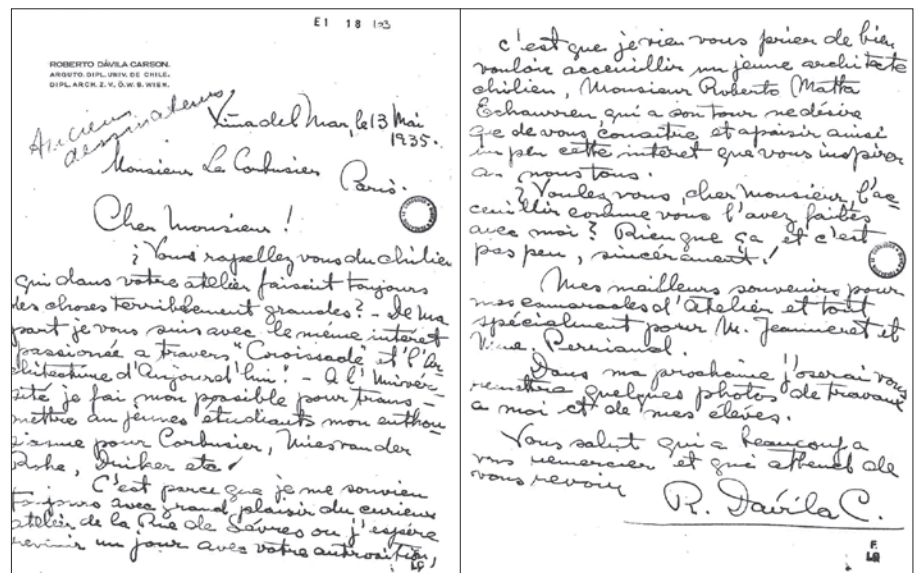 E1 18 193
ROBERTO DÁVILA CARSON.
ARQUTO. DIPL. UNIV. DE CHILE.
DIPL. ARCH. Z. V. Ö. W. B. WIEN.
Anciens dessinateurs
Viña del Mar, le 13 Mai
1935.
Monsieur Le Corbusier
Paris.
Cher Monsieur !
¿ Vous rapellez vous du chilien
qui dans votre atelier faisait toujours
des choses terriblement grandes? - De ma
part je vous suis avec le même intéret
passionée a travers "Croissade" et l'Ar
chitecture d'Aujourd'hui! - A l'Univer-
sité je fai mon possible pour trans-
mettre au jeunes étudiants mon enthou
siasme pour Corbusier, Mies van der
Rohe, etc.
C'est parce que je me souvien
toujours avec grand plaisir du curieux
atelier de la Rue de Sévres ou j'espère
revinir un jour avec votre
c'est que je vien vous prier de bien
vouloir acceuillir un jeune architecte
chilien, Monsieur Roberto Matta
Echaurren, qui a son tour ne désire
que de vous conaître et apaisir ainsi
un peu cette intéret que vous inspirer
a nous tous.
? Voulez vous, cher Monsieur, l'ac-
ceuillir comme vous l'avez faites
avec moi? Rien que ça et c'est
pas peu, sincérament!
Mes meilleurs souvenirs pour
mes camarades d'Atelier et tout
spécialment pour M. Jeanneret et
Mme. Perriand.
Dans ma prochaine j'oserai vous
remettre quelques photos de travaux
a moi et de mes éléves.
Vous salut qui a beaucoup a
vous remercier et qui attend de
vous revoir
R. Dávila C.
F.
LC